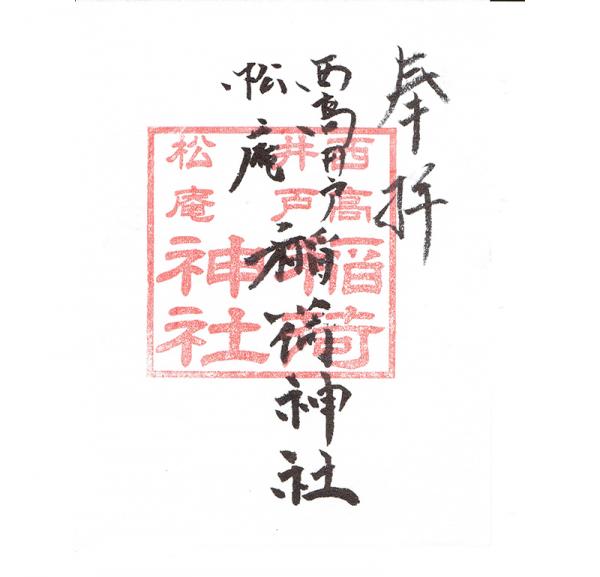 奉拝
西高井戸
松庵
稲荷神社
西高
井戸
稲荷
松庵
神社